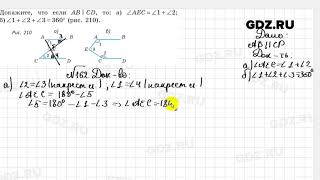 Докажите, что если AB || CD, то: а) ∠AEC = ∠1 + ∠2;
б) ∠1 + ∠2 + ∠3 = 360° (рис. 210).
GDZ.RU
Рис. 210
а)
б)
Дано:
AB || CD
Док-ть:
а) ∠AEC = ∠1 + ∠2
б) ∠1 + ∠2 + ∠3 = 360°
№162 Док-во:
а) ∠2 = ∠3 (накрест л.), ∠1 = ∠4 (накрест л.)
∠AEC = 180° - ∠5
∠5 = 180° - ∠1 - ∠3 ⇒ ∠AEC = 180
GDZ.RU